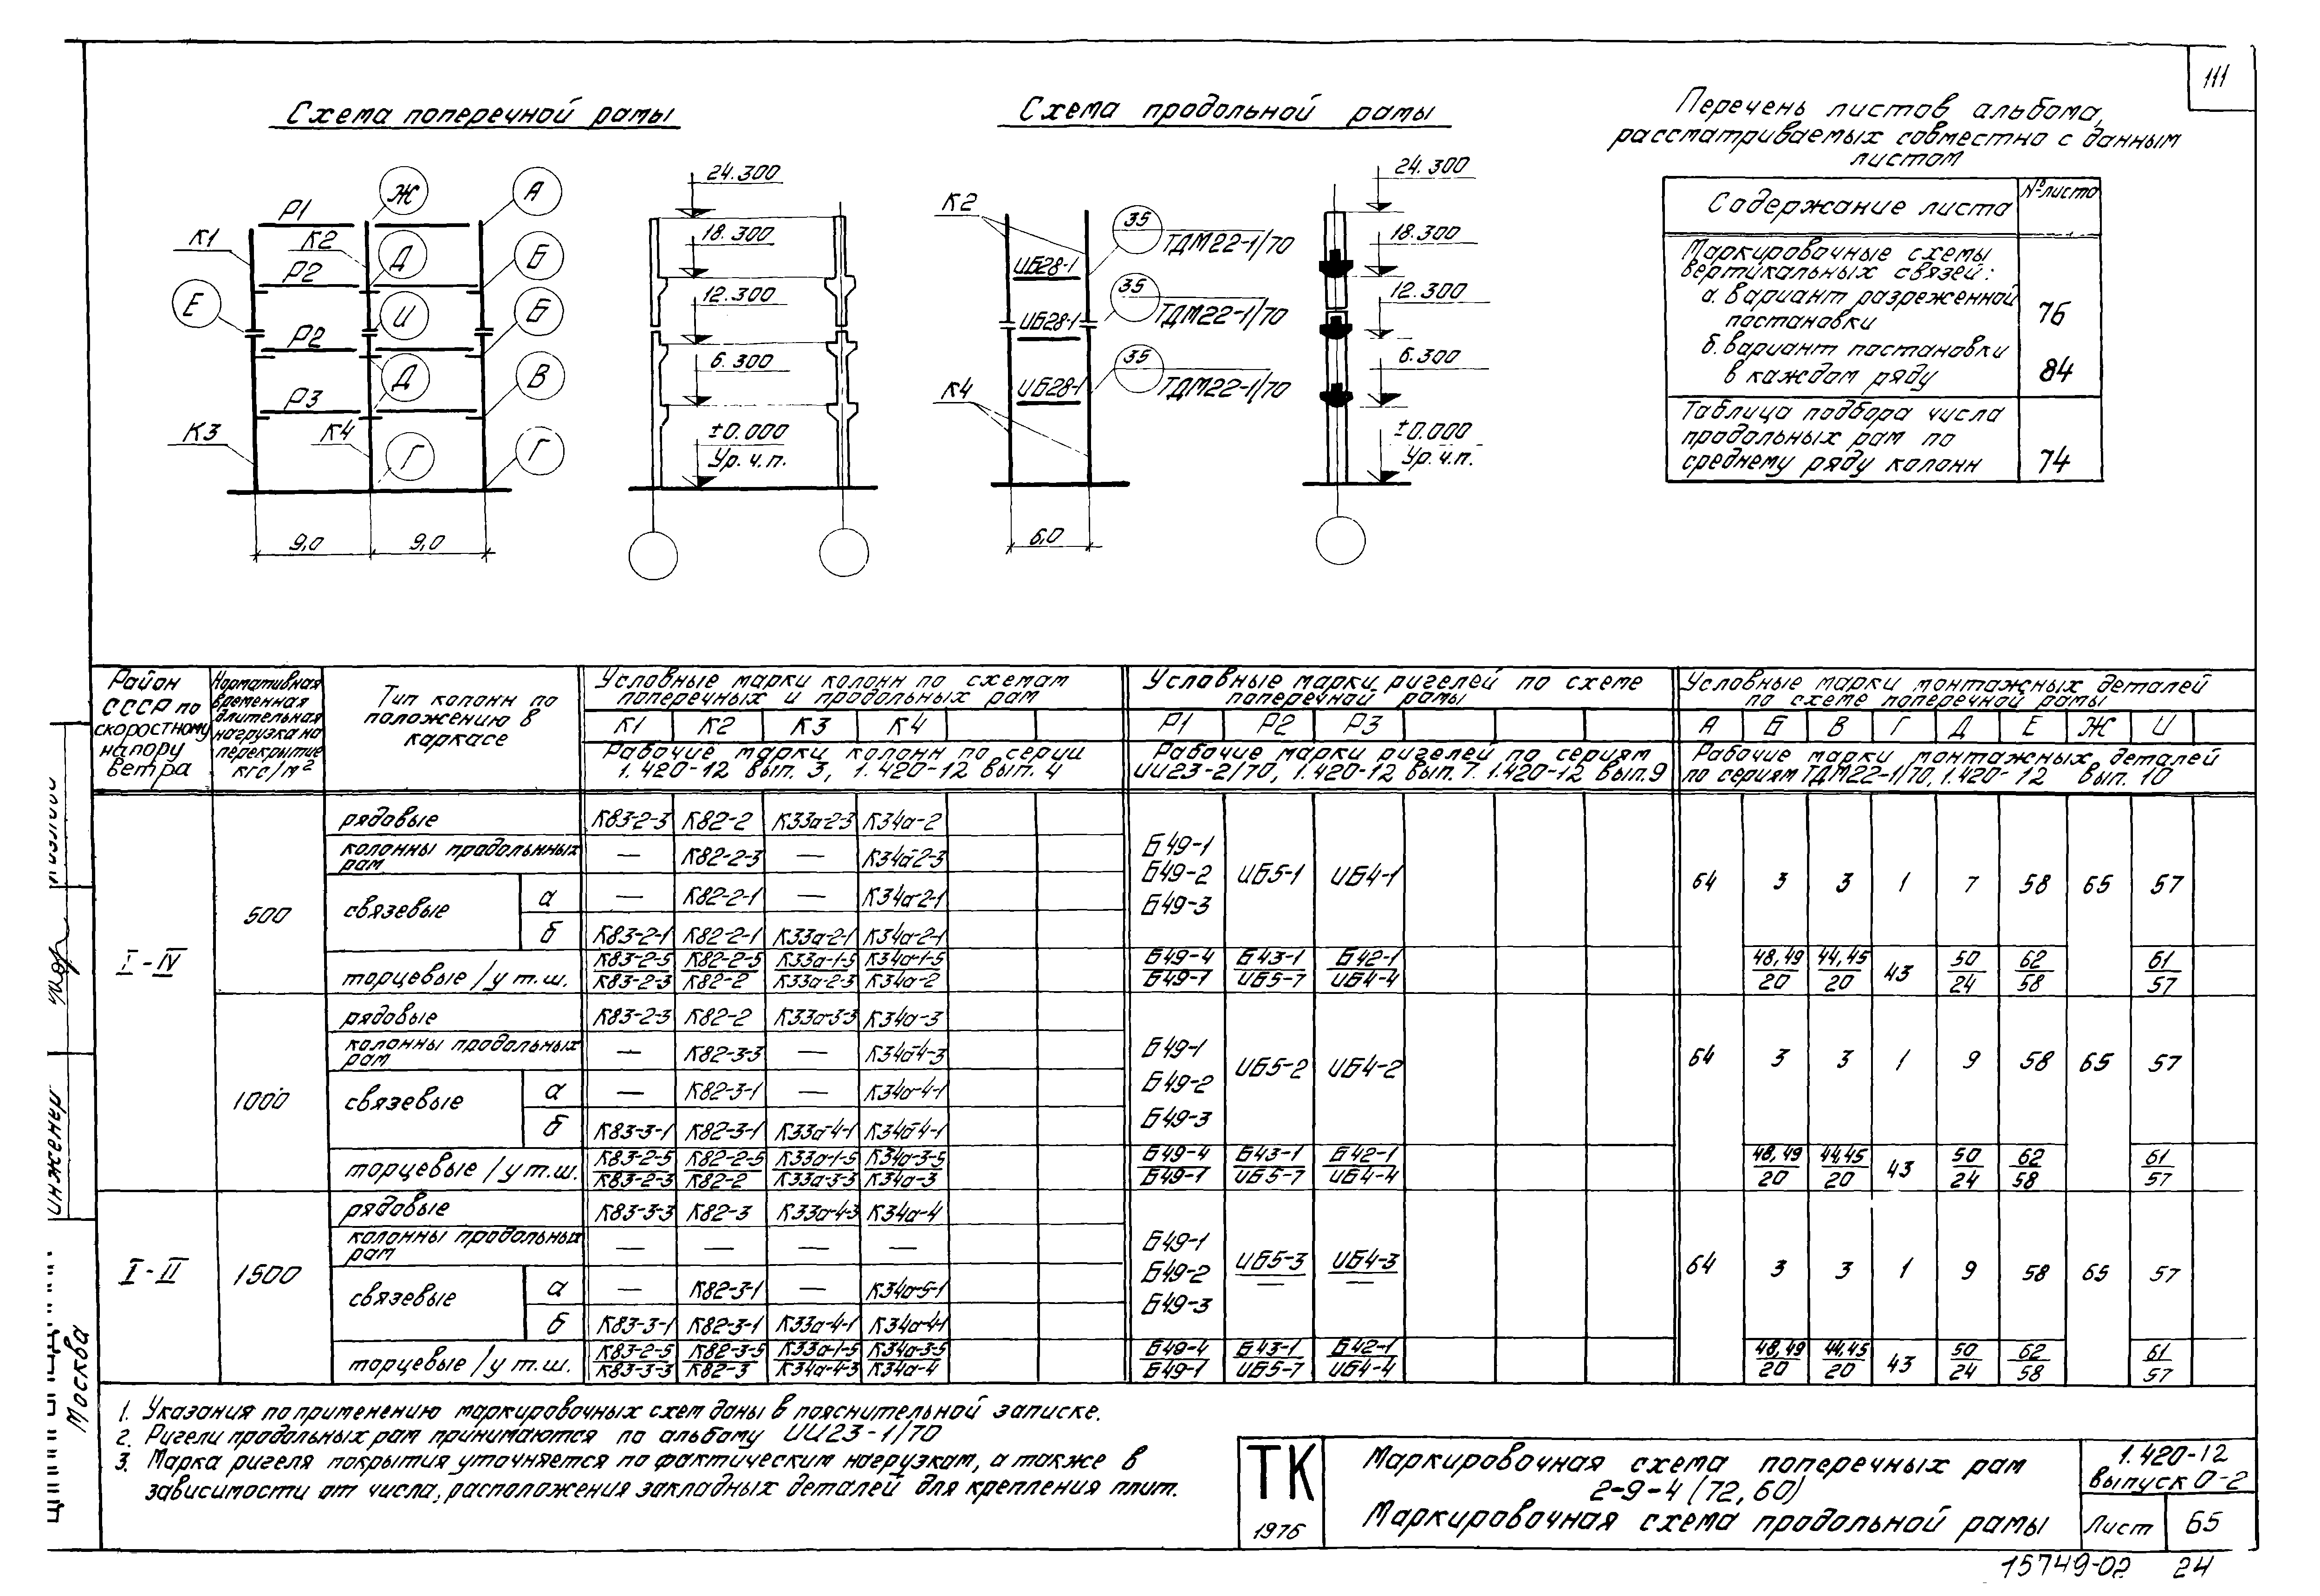 111
Схема поперечной рамы
Схема продольной рамы
Перечень листов альбома,
рассматриваемых совместно с данным
листом
Содержание листа
№ листа
Маркировочные схемы
вертикальных связей:
а. вариант разреженной
постановки
76
б. вариант постановки
в каждом ряду
84
Таблица подбора числа
продольных рам по
среднему ряду колонн
74
Ж
А
Р1
К1
К2
Д
Б
Р2
Е
И
Б
Р2
Д
В
Р3
К3
К4
Г
Г
9,0
9,0
24.300
18.300
12.300
6.300
±0.000
Ур. ч.п.
К2
35
ТДМ22-1/70
ИБ28-1
35
ТДМ22-1/70
ИБ28-1
35
ТДМ22-1/70
ИБ28-1
К4
6,0
24.300
18.300
12.300
6.300
±0.000
Ур. ч.п.
Район
СССР по
скоростному
напору
ветра
Нормативная
временная
длительная
нагрузка на
перекрытие
кгс/м²
Тип колонн по
положению в
каркасе
Условные марки колонн по схемам
поперечных и продольных рам
К1 К2 К3 К4
Рабочие марки колонн по серии
1.420-12 вып. 3, 1.420-12 вып. 4
Условные марки ригелей по схеме
поперечной рамы
Р1 Р2 Р3
Рабочие марки ригелей по сериям
ИИ23-2/70, 1.420-12 вып. 7. 1.420-12 вып.9
Условные марки монтажных деталей
по схеме поперечной рамы
А Б В Г Д Е Ж И
Рабочие марки монтажных деталей
по сериям ТДМ22-1/70, 1.420-12 вып. 10
I-IV
500
рядовые К83-2-3 К82-2 К33а-2-3 К34а-2
колонны продольнных
рам — К82-2-3 — К34а-2-3
связевые
а — К82-2-1 — К34а-2-1
б К83-2-1 К82-2-1 К33а-2-1 К34а-2-1
Б49-1
Б49-2
Б49-3
ИБ5-1 ИБ4-1
64 3 3 1 7 58 65 57
торцевые / у т.ш.
К83-2-5 К82-2-5 К33а-1-5 К34а-1-5 Б49-4 Б43-1 Б42-1 48,49 44,45 43 50 62 61
К83-2-3 К82-2 К33а-2-3 К34а-2 Б49-1 ИБ5-7 ИБ4-4 20 20 24 58 57
1000
рядовые К83-2-3 К82-2 К33а-3-3 К34а-3
колонны продольных
рам — К82-3-3 — К34а-4-3
связевые
а — К82-3-1 — К34а-4-1
б К83-3-1 К82-3-1 К33а-4-1 К34а-4-1
Б49-1
Б49-2
Б49-3
ИБ5-2 ИБ4-2
64 3 3 1 9 58 65 57
торцевые / у т.ш.
К83-2-5 К82-2-5 К33а-1-5 К34а-3-5 Б49-4 Б43-1 Б42-1 48,49 44,45 43 50 62 61
К83-2-3 К82-2 К33а-3-3 К34а-3 Б49-1 ИБ5-7 ИБ4-4 20 20 24 58 57
I-II
1500
рядовые К83-3-3 К82-3 К33а-4-3 К34а-4
колонны продольных
рам — — — —
связевые
а — К82-3-1 — К34а-5-1
б К83-3-1 К82-3-1 К33а-4-1 К34а-4-1
Б49-1
Б49-2
Б49-3
ИБ5-3 ИБ4-3
— —
64 3 3 1 9 58 65 57
торцевые / у т.ш.
К83-2-5 К82-3-5 К33а-1-5 К34а-3-5 Б49-4 Б43-1 Б42-1 48,49 44,45 43 50 62 61
К83-3-3 К82-3 К34а-4-3 К34а-4 Б49-1 ИБ5-7 ИБ4-4 20 20 24 58 57
1. Указания по применению маркировочных схем даны в пояснительной записке.
2. Ригели продольных рам принимаются по альбому ИИ23-1/70
3. Марка ригеля покрытия уточняется по фактическим нагрузкам, а также в
зависимости от числа, расположения закладных деталей для крепления плит.
ТК
1976
Маркировочная схема поперечных рам
2-9-4 (72, 60)
Маркировочная схема продольной рамы
1.420-12
выпуск 0-2
Лист 65
15749-02 24
инженер
Москва